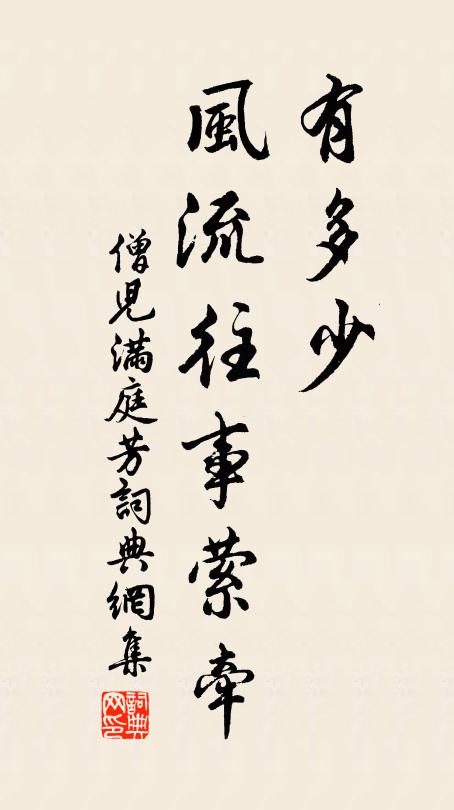 有多少
風流往事縈牽
僧兒滿庭芳詞典網集
詞典
网印